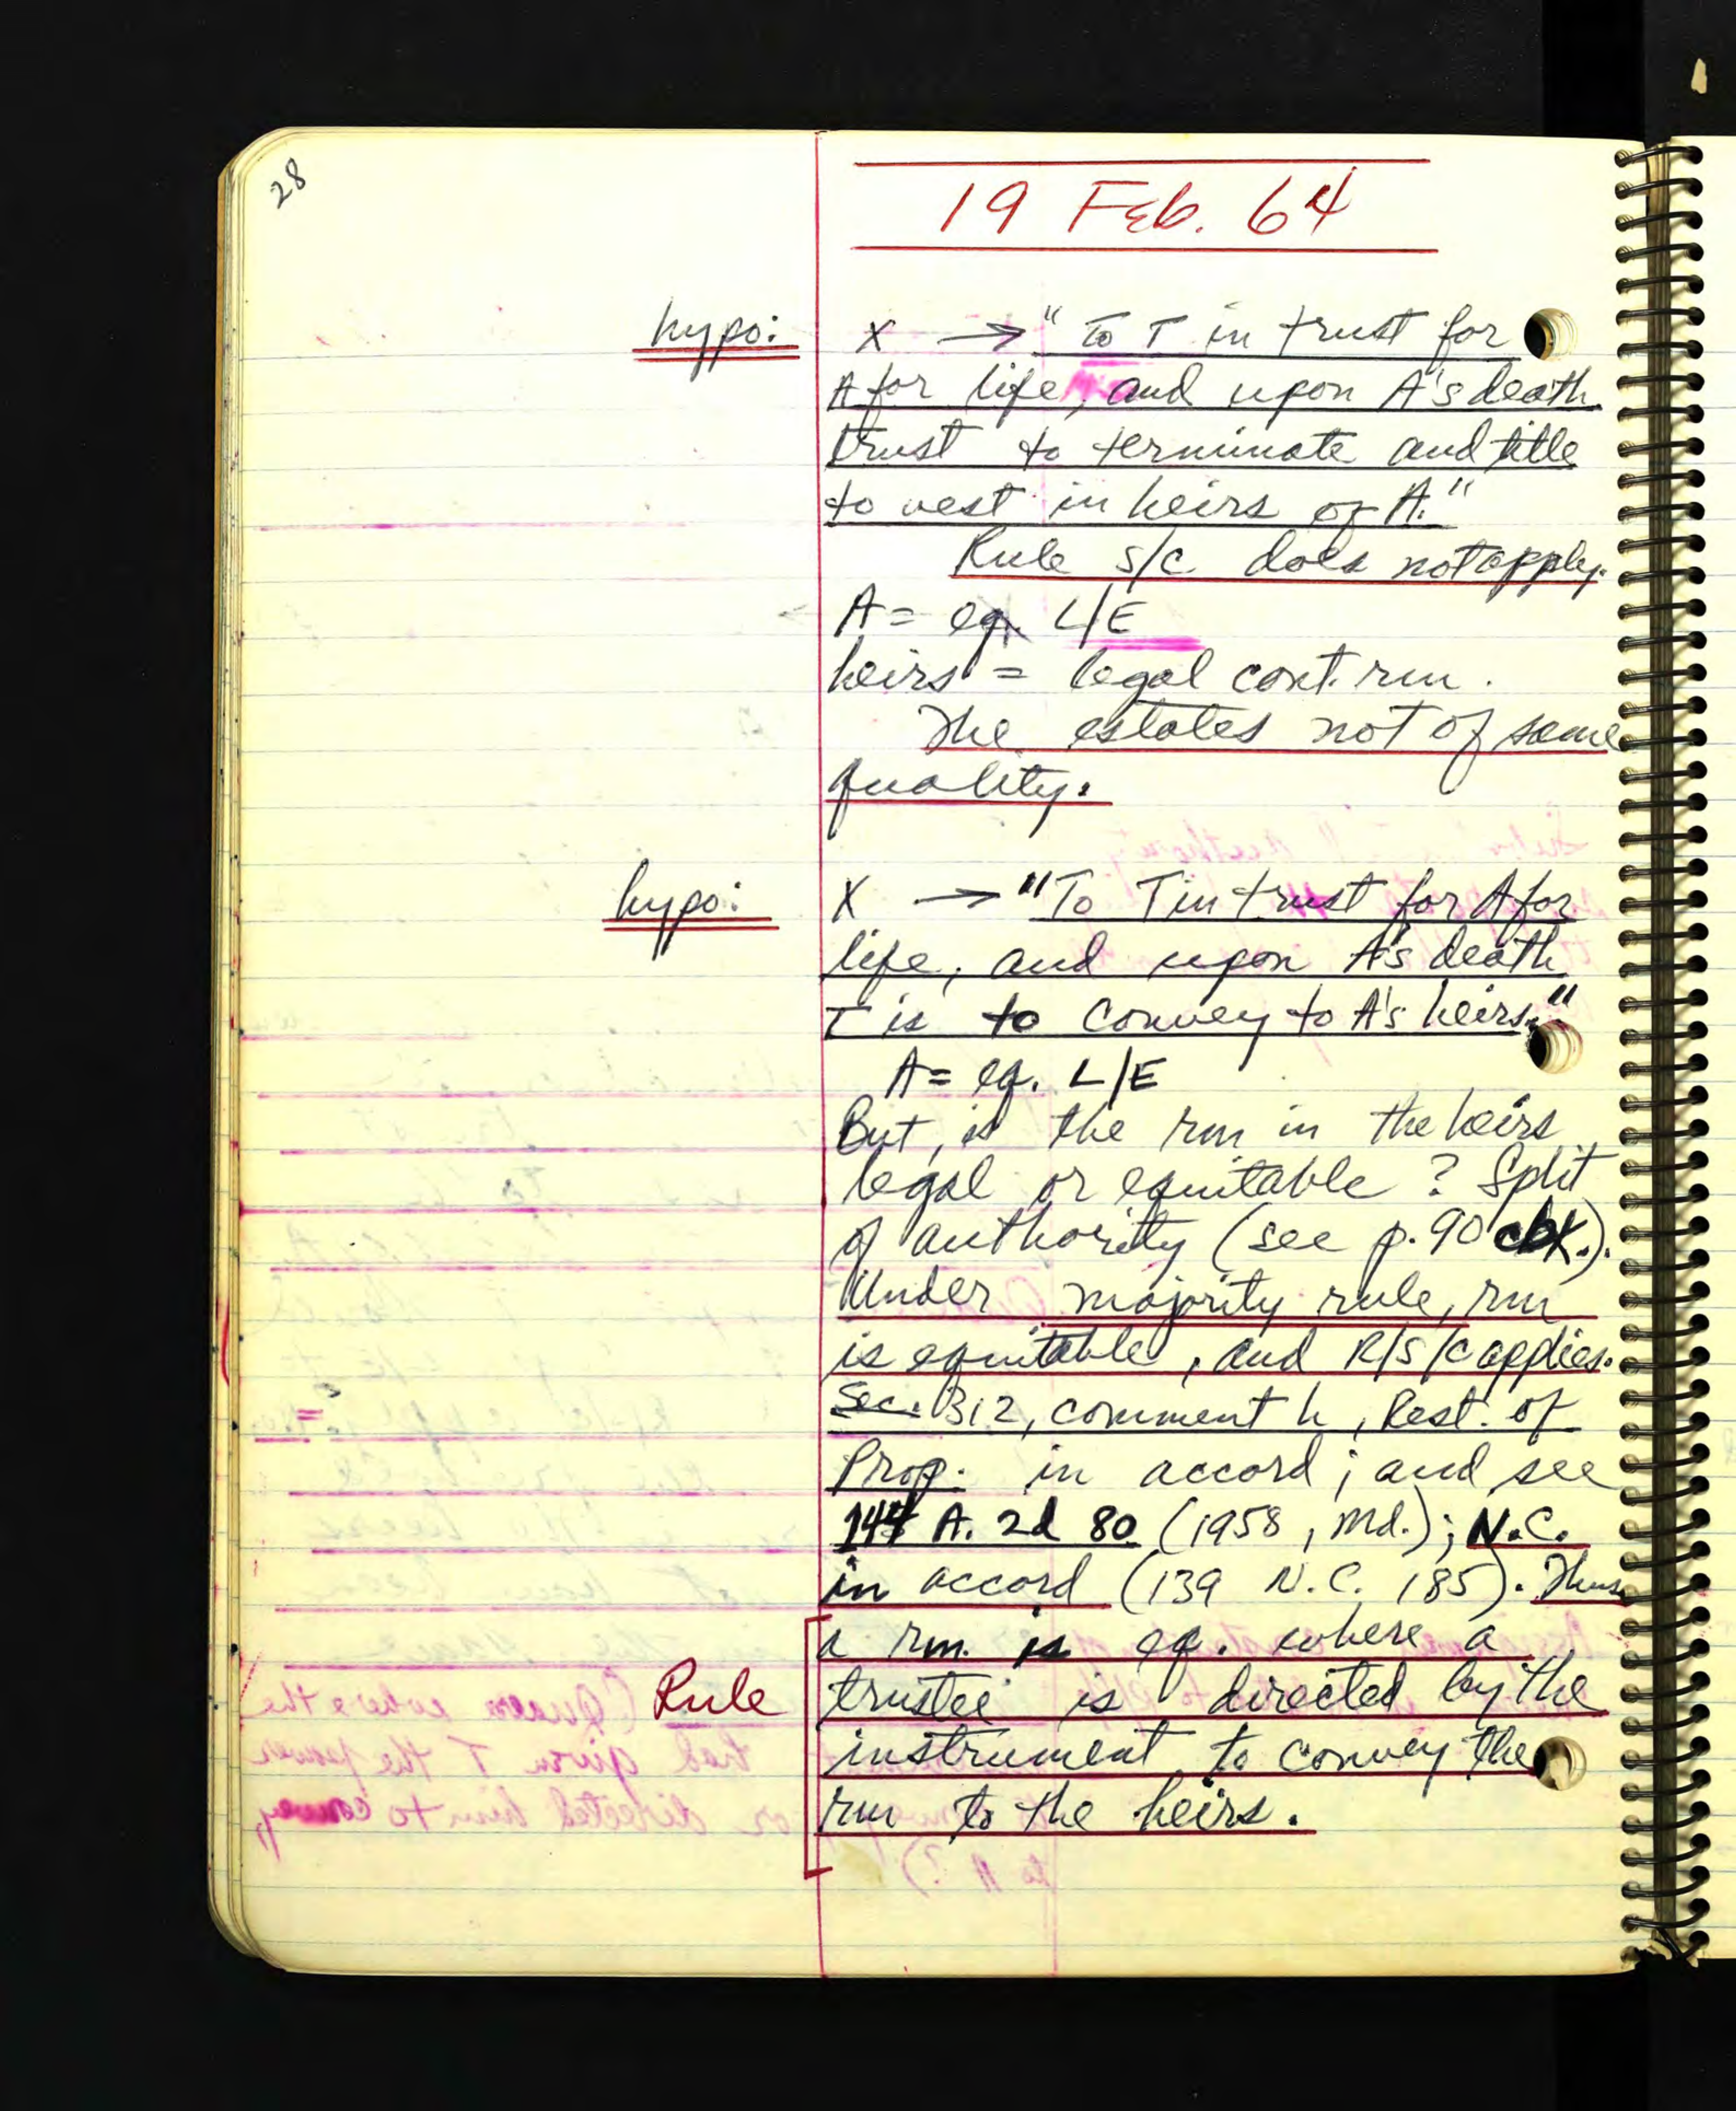 28
19 Feb. 64
hypo: X → "To T in trust for
A for life, and upon A's death
trust to terminate and title
to vest in heirs of A."
Rule S/C does not apply.
A = eq. L/E
heirs = legal cont. rm.
The estates not of same
quality.
hypo: X → "To T in trust for A for
life, and upon A's death
T is to convey to A's heirs."
A = eq. L/E
But, is the rm in the heirs
legal or equitable? Split
of authority (see p. 90 cbk.).
Under majority rule, rm
is equitable, and R/S/C applies.
Sec. 312, comment h, Rest. of
Prop. in accord; and see
144 A. 2d 80 (1958, Md.); N.C.
in accord (139 N.C. 185). Thus
a rm. is eq. where a
Rule trustee is directed by the
instrument to convey the
rm to the heirs.